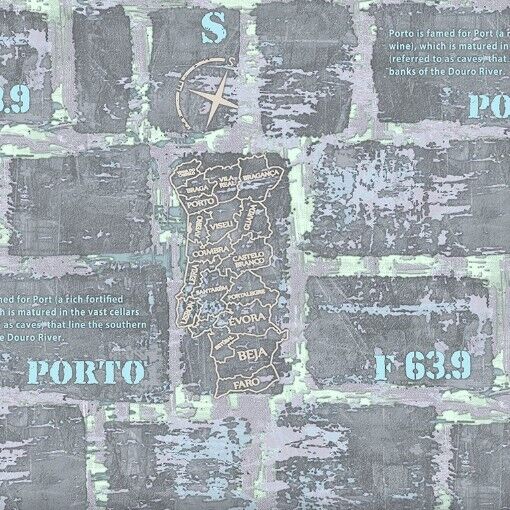 S
Porto is famed for Port (a r
wine), which is matured in
(referred to as caves) that
banks of the Douro River.
3.9
PO
BRAGA
VILA
REAL
BRAGANÇA
PORTO
AVEIRO
VISEU
GUARDA
COIMBRA
LEIRIA
CASTELO
BRANCO
SANTARÉM
PORTALEGRE
LISBOA
ÉVORA
SETÚBAL
BEJA
FARO
ned for Port (a rich fortified
h is matured in the vast cellars
as caves) that line the southern
e Douro River.
PORTO
F 63.9